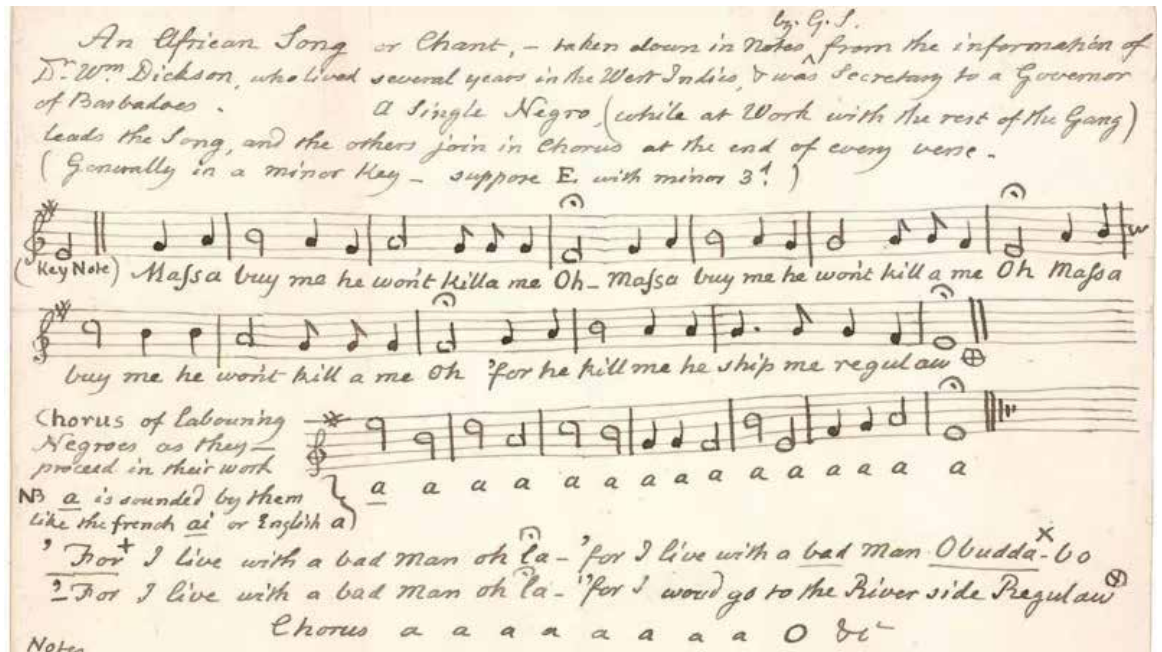 by G. S.
An African Song or Chant, – taken down in Notes, from the information of
Dr. Wm. Dickson, who lived several years in the West Indies, & was Secretary to a Governor
of Barbadoes. A Single Negro, (while at Work with the rest of the Gang)
leads the Song, and the others join in Chorus at the end of every verse.
(Generally in a minor Key – suppose E. with minor 3d.)
(Key Note) Maſsa buy me he won't killa me Oh – Maſsa buy me he won't kill a me Oh Maſsa
buy me he won't kill a me Oh 'for he kill me he ship me regulaw ⊕
Chorus of labouring
Negroes as they –
proceed in their work
a a a a a a a a a a a a a a
NB a is sounded by them
like the french ai or English a)
'For + I live with a bad man oh la – 'for I live with a bad man Obudda x - bo
'For I live with a bad man oh la – 'for I woud go to the River side Regulaw ⊗
Chorus a a a a a a a a O &c
Notes